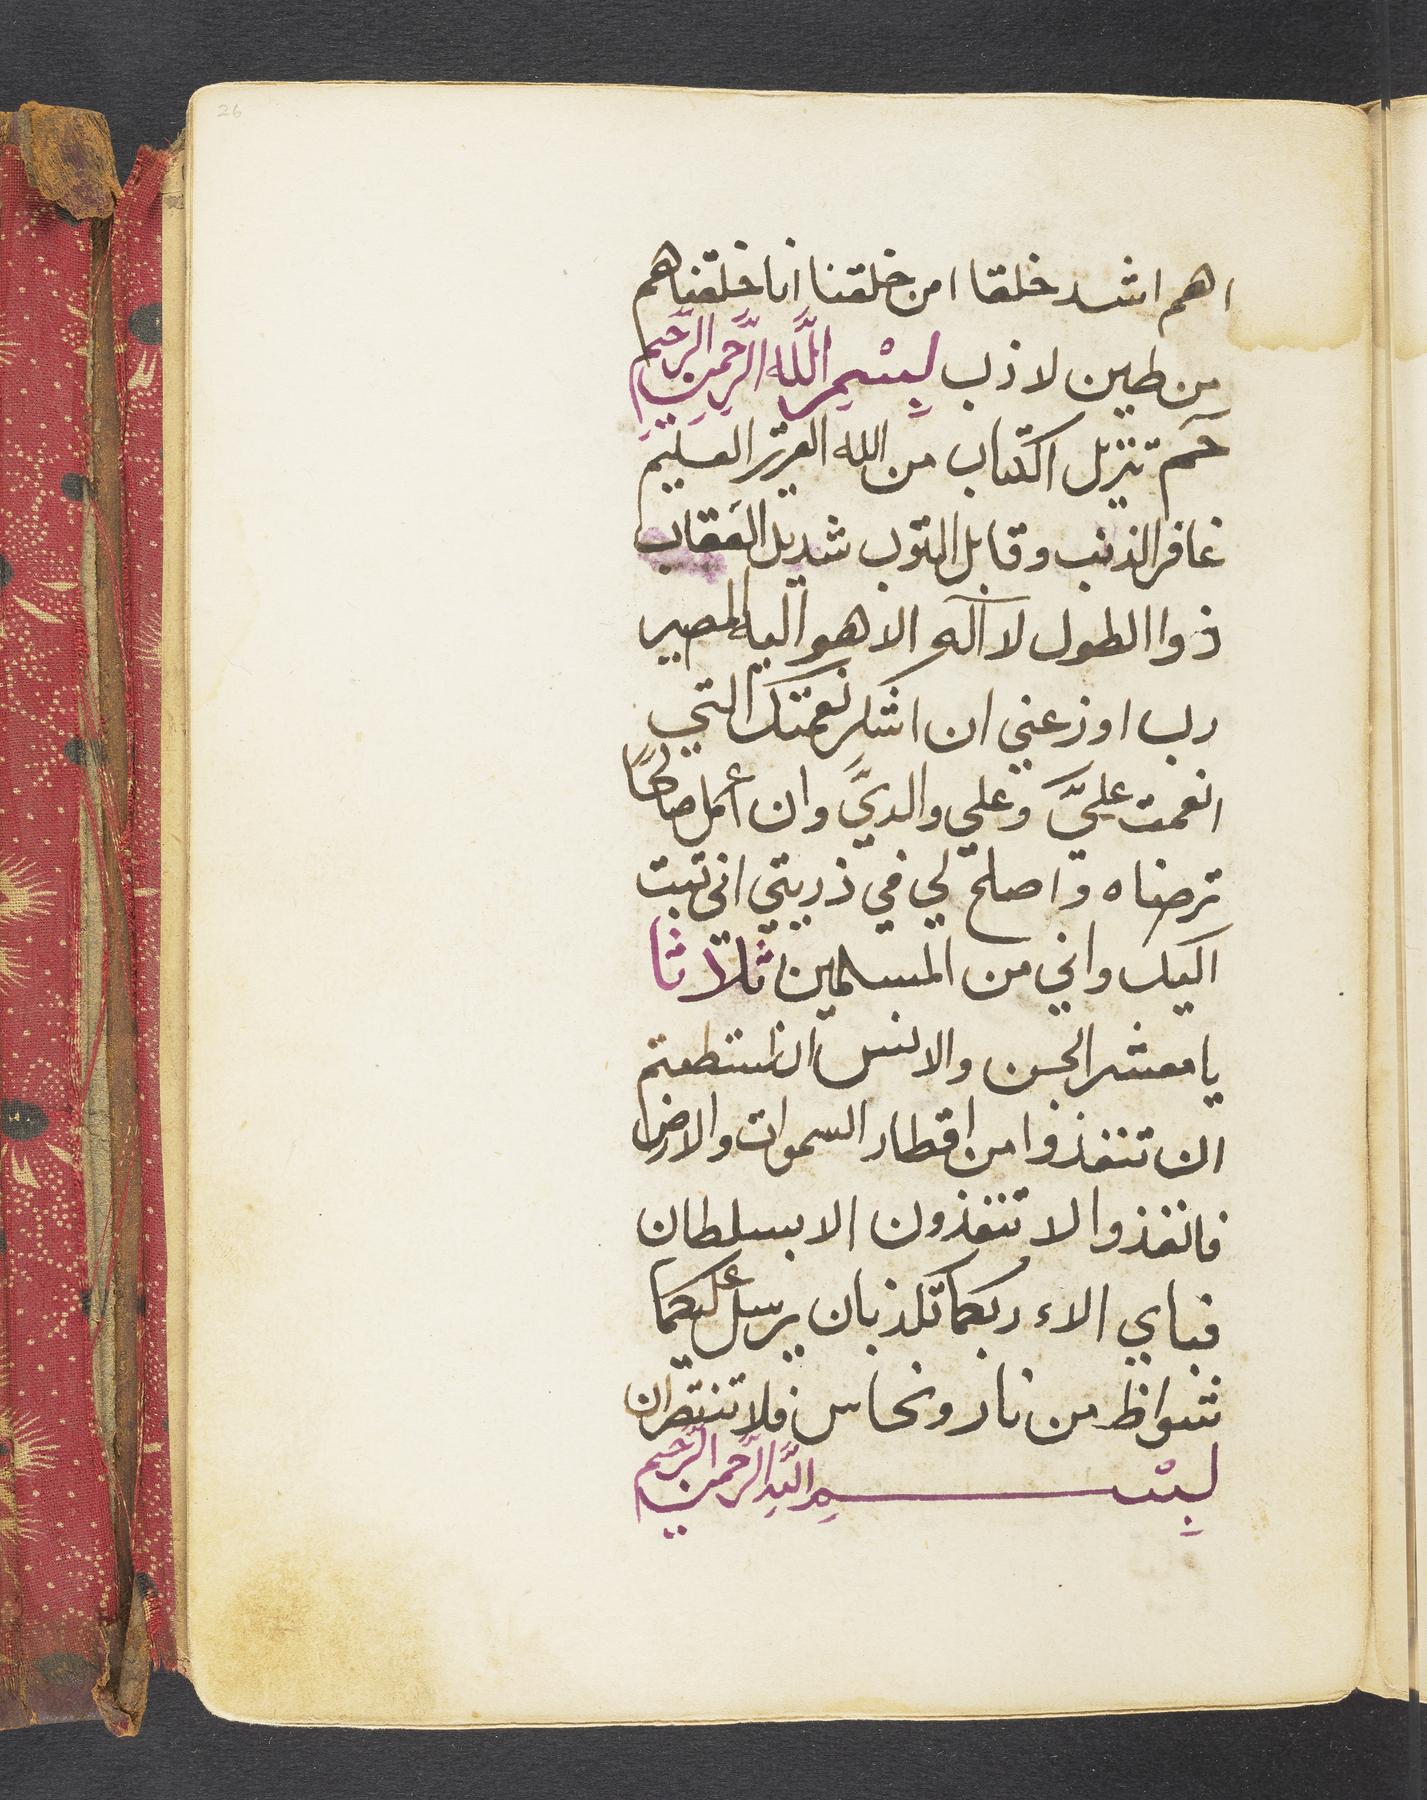 26
اهم اشد خلقا امن خلقنا انا خلقناهم
من طين لاذب بِسْمِ اللَّه الرَّحمن الرَّحيم
حٓم تنزيل اكتاب من الله العزيز العليم
غافر الذنب وقابل التوب شديد العقاب
ذوا الطول لا آله الا هو اليه المصير
رب اوزعني ان اشكر نعمتك التي
انعمت عليَّ وعلي والديَّ وان أعمل صالحًا
ترضاه واصلح لي في ذريتي اني تبت
اليك واني من المسلمين ثلاثا
يا معشر الجن والانس ان استطعتم
ان تنفذوا من اقطار السموات والارض
فانفذوا لا تنفذون الا بسلطان
فباي الاء ربكما تكذبان يرسل عليكما
شواظ من نار ونحاس فلا تنتصران
بِسْمِ اللَّهِ الرَّحمن الرَّحيم